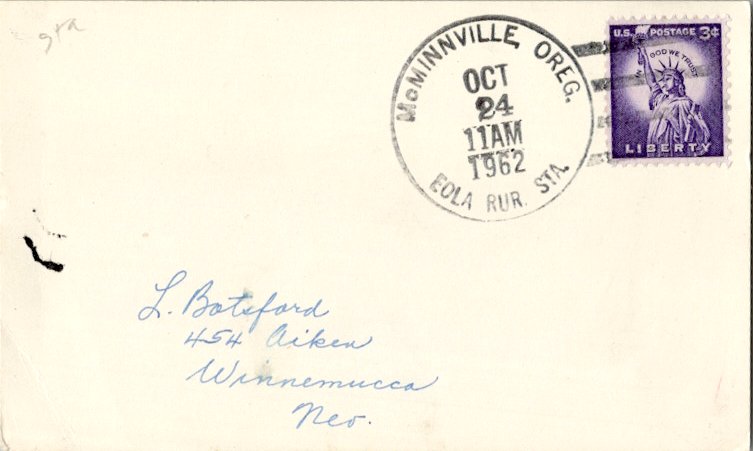 gra
McMINNVILLE, OREG.
OCT
24
11AM
1962
EOLA RUR. STA.
U.S. POSTAGE 3¢
IN GOD WE TRUST
LIBERTY
L. Botsford
454 Aiken
Winnemucca
Nev.